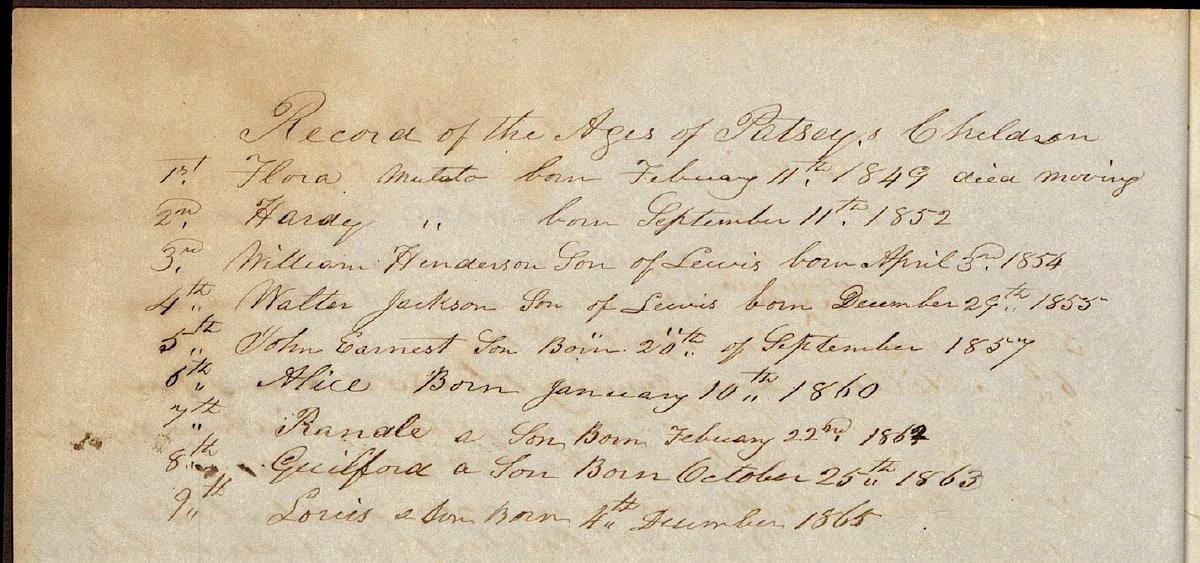 Record of the Ages of Patsey,s Children
1st. Flora Mulato born Febuary 11th. 1849 died moving
2nd. Hardy ,, born September 11th. 1852
3rd. William Henderson Son of Lewis born April 3rd. 1854
4th,, Walter Jackson Son of Lewis born December 29th,, 1855
5th,, John Earnest Son Born 20th,, of September 1857
6th,, Alice Born January 10th,, 1860
7th,, Randle a Son Born Febuary 22nd. 1862
8th,, Guilford a Son Born October 25th,, 1863
9th,, Louis a Son Born 4th,, December 1865